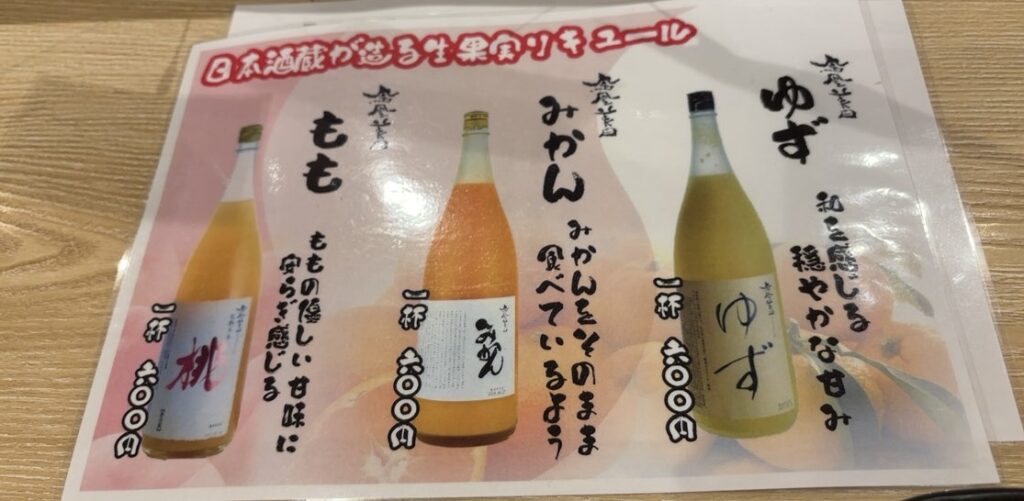 日本酒蔵が造る生果実リキュール
鳳凰美田
ゆず
和を感じる
穏やかな甘み
一杯 六〇〇円
ゆず
鳳凰美田
みかん
みかんをそのまま
食べているよう
一杯 六〇〇円
みかん
鳳凰美田
もも
ももの優しい甘味に
安らぎ感じる
一杯 六〇〇円
桃